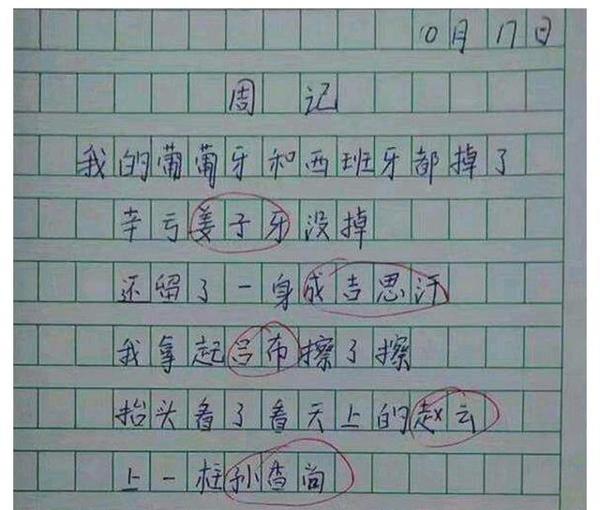 10月17日
周记
我的葡萄牙和西班牙都掉了
辛亏姜子牙没掉
还留了一身成吉思汗
我拿起吕布擦了擦
抬头看了看天上的赵云
上一柱孙香尚